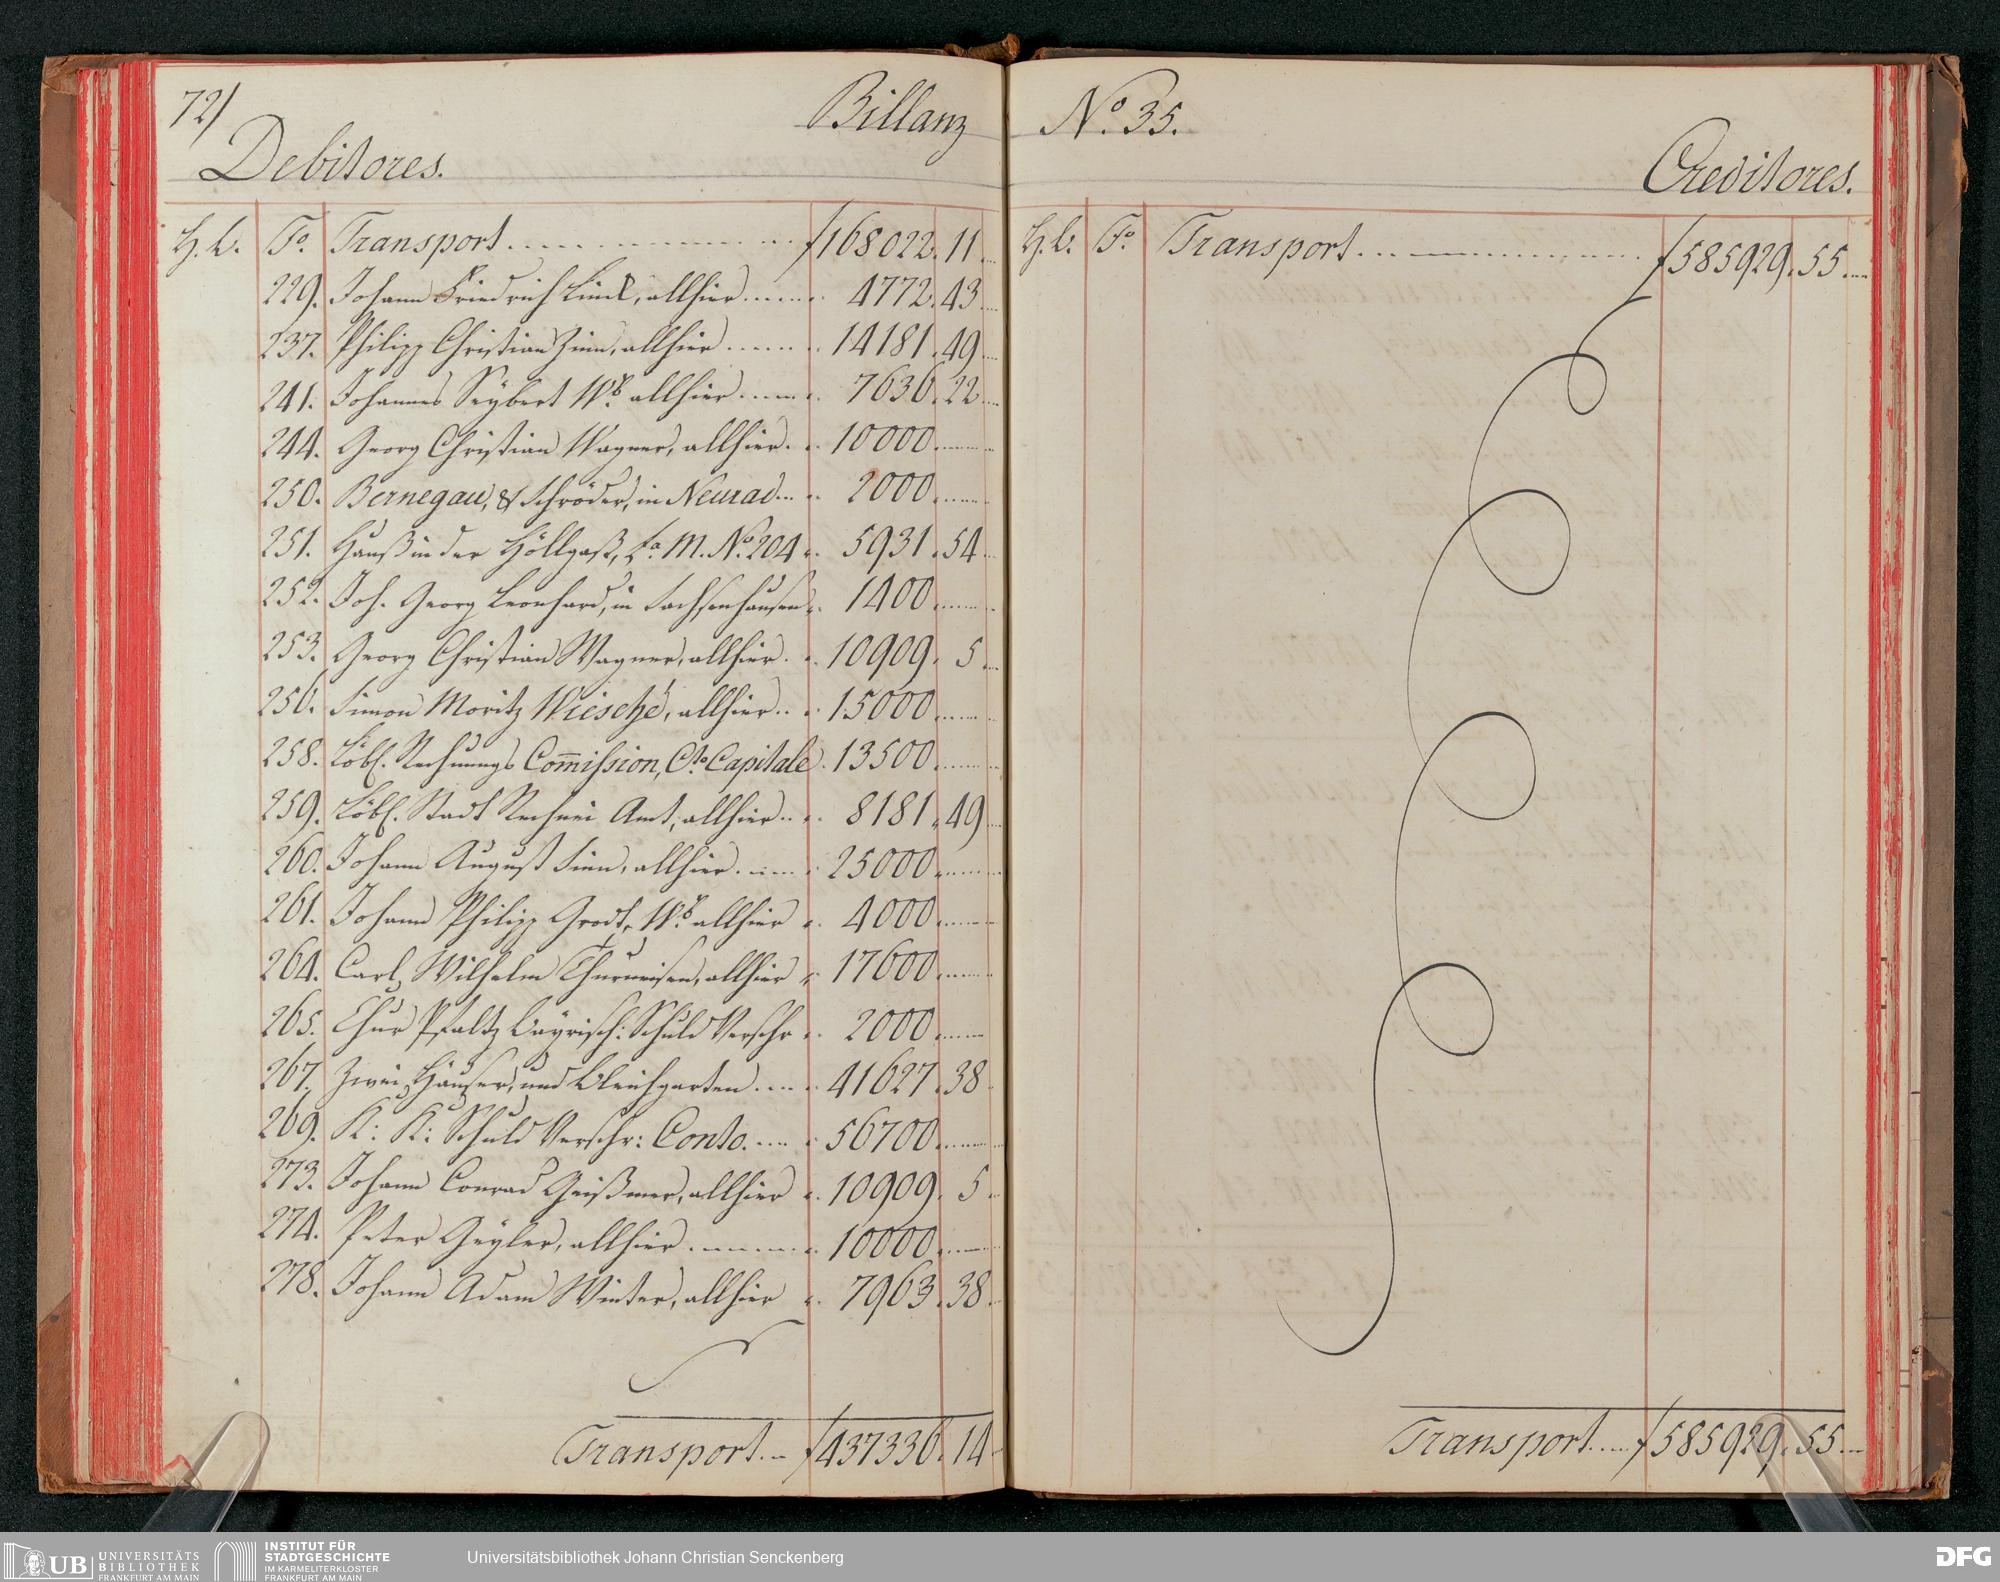 72/
Billanz
No. 35.
Debitores.
Creditores.
H. L. Fo. Transport f 168022. 11
229. Johann Friedrich Linck, allhier 4772. 43
237. Philipp Christian Zinn, allhier 14181. 49
241. Johannes Seybert Wb. allhier 7636. 22
244. Georg Christian Wagner, allhier 10000.
250. Bernegau, & Schröder, in Neurad 2000.
251. Hauß in der Höllgaß, La. M. No. 204 5931. 54
252. Joh. Georg Leonhard, in Sachsenhausen 1400.
253. Georg Christian Wagner, allhier 10909. 5
256. Simon Moritz Wiesché, allhier 15000
258. Löbl. Rechnungs Com̅ission, Cto. Capitale 13500.
259. Löbl. Stadt Rechnei Amt, allhier 8181. 49
260. Johann August Sinn, allhier 25000.
261. Johann Philipp Wb. allhier 4000.
264. Carl Wilhelm Thurneisen, allhier 17600.
265. Chur Pfaltz Bayrisch: Schuld Verschr 2000.
267. Zwei Häuser, und Bleichgarten 41627. 38
269. K: K: Schuld Verschr: Conto. 56700.
273. Johann Conrad Geißmer, allhier 10909. 5
274. Peter Geyler, allhier 10000.
278. Johann Adam Winter, allhier 7963. 38
Transport f 437336. 14
H. L. Fo. Transport f 585929. 55
Transport f 585929. 55
UB UNIVERSITÄTS
BIBLIOTHEK
FRANKFURT AM MAIN
INSTITUT FÜR
STADTGESCHICHTE
IM KARMELITERKLOSTER
FRANKFURT AM MAIN
Universitätsbibliothek Johann Christian Senckenberg
DFG